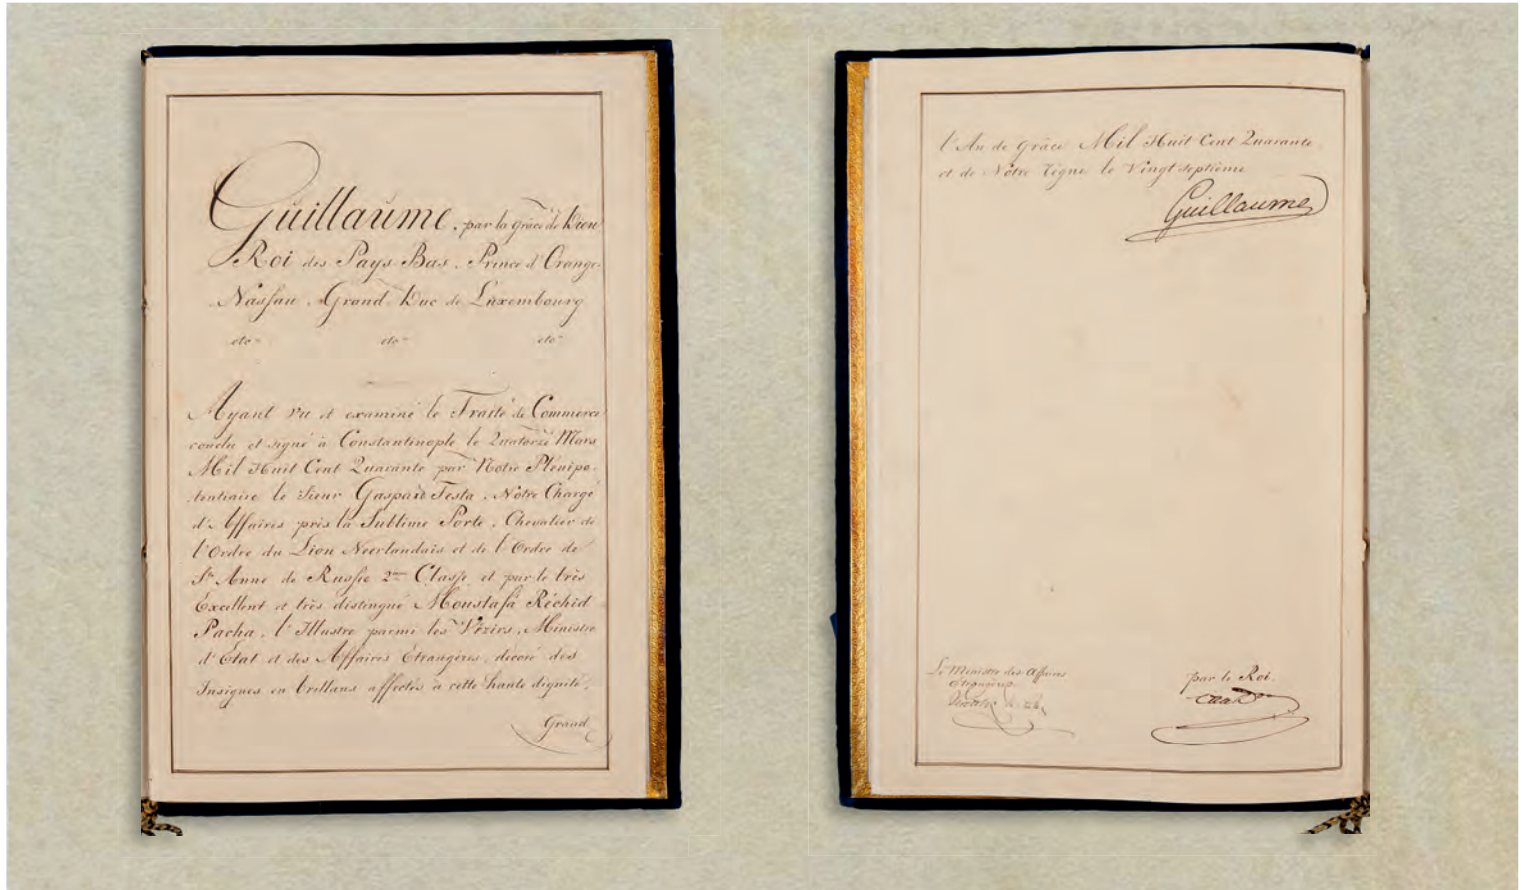 Guillaume, par la grâce de Dieu
Roi des Pays-Bas, Prince d'Orange-
Nassau, Grand Duc de Luxembourg
etc etc etc
Ayant vu et examiné le Traité de Commerce
conclu et signé à Constantinople le Quatorze Mars
Mil Huit Cent Quarante par Notre Plénipo-
tentiaire le Sieur Gaspard Testa, Notre Chargé
d'Affaires près la Sublime Porte, Chevalier de
l'Ordre du Lion Néerlandais et de l'Ordre de
Ste Anne de Russie 2me Classe, et par le très
Excellent et très distingué Moustafà Réchid
Pacha, l'Illustre parmi les Vézirs, Ministre
d'Etat et des Affaires Etrangères, décoré des
Insignes en brillans affectés à cette haute dignité,
Grand
l'An de grâce Mil Huit Cent Quarante
et de Notre règne le Vingt septième
Guillaume
Le Ministre des Affaires
Etrangères
par le Roi.